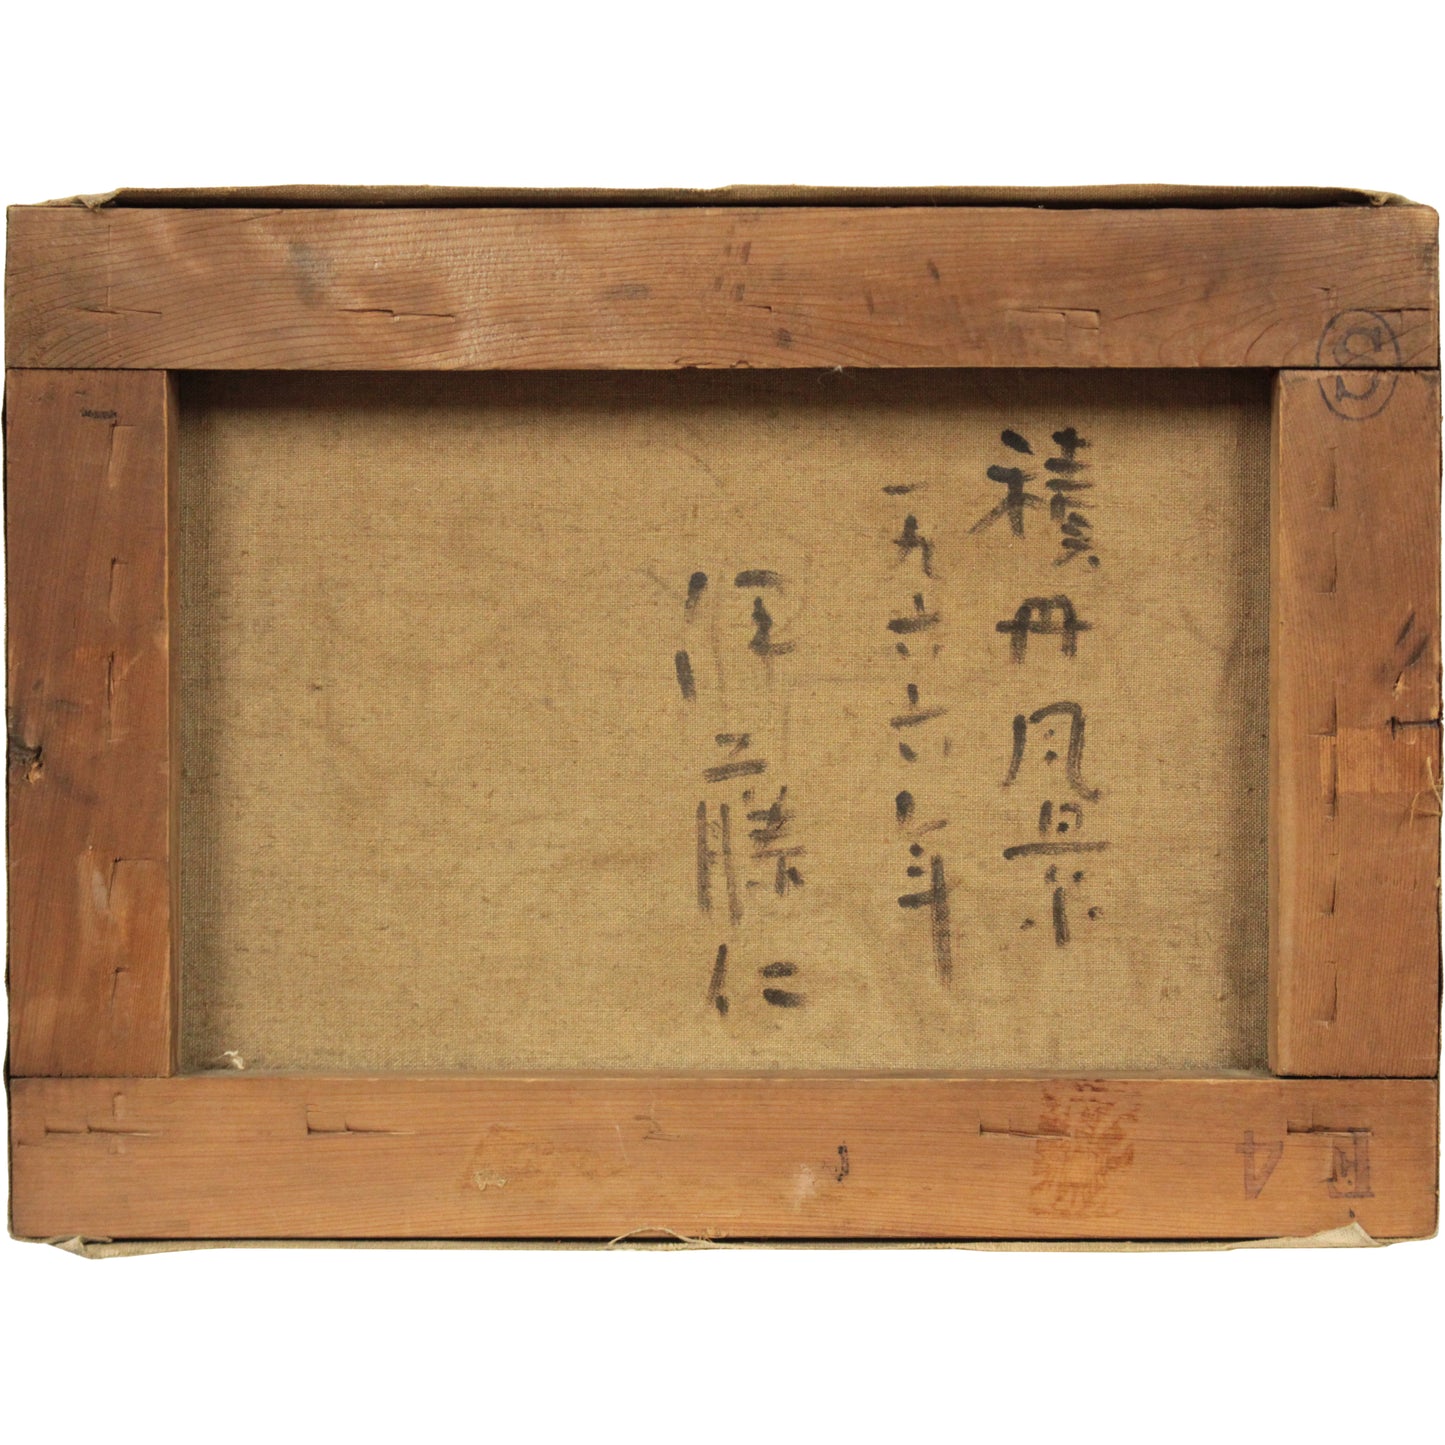 積丹風景
一九六六年
伊藤仁
F4